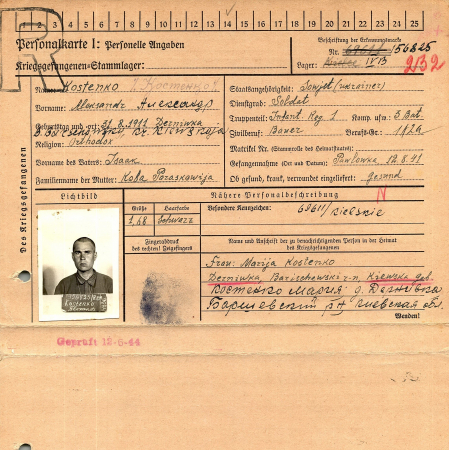 1 2 3 4 5 6 7 8 9 10 11 12 13 14 15 16 17 18 19 20 21 22 23 24 25
Personalkarte I: Personelle Angaben
Kriegsgefangenen-Stammlager:
Beschriftung der Erkennungsmarke
Nr. 69611/156825
Lager: IV B
232
R
Des Kriegsgefangenen
Name: Kostenko
Vorname: Александр
Geburtstag und -ort: 31.8.1911 Derniwka
Religion: Orthodox
Vorname des Vaters: Isaak
Familienname der Mutter: Koba Poraskowija
Staatsangehörigkeit: Sowjet (ukrainer)
Dienstgrad: Soldat
Truppenteil: Infant. Reg. 1 Komp. usw.: 3 Bat
Zivilberuf: Bauer Berufs-Gr.:
Matrikel Nr. (Stammrolle des Heimatstaates):
Gefangennahme (Ort und Datum): Pawlowka 12.8.41
Ob gesund, krank, verwundet eingeliefert: gesund
Lichtbild
Größe
Haarfarbe
1,68 Schwarz
Fingerabdruck
des rechten! Zeigefingers
Nähere Personalbeschreibung
N
Besondere Kennzeichen: 69611/Kielskie
Name und Anschrift der zu benachrichtigenden Person in der Heimat
des Kriegsgefangenen
Frau: Marija Kostenko
Derniwka Barischowski r-n, Kiewska
Костенко Мария
р-н Киевская обл.
Wenden!
Kostenko
Geprüft 12-6-44